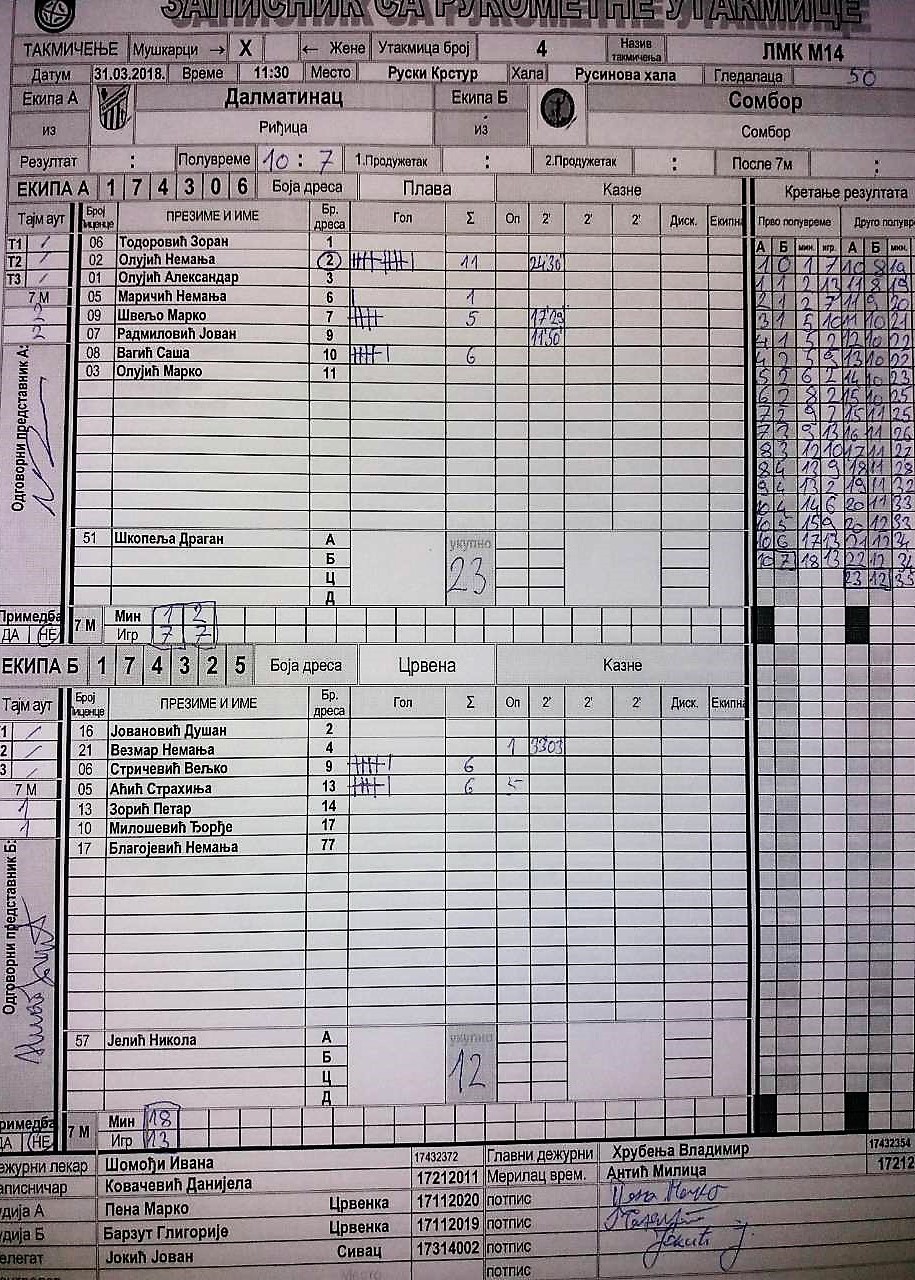 ЗАПИСНИК СА РУКОМЕТНЕ УТАКМИЦЕ
ТАКМИЧЕЊЕ Мушкарци → X ← Жене Утакмица број 4 Назив такмичења ЛМК М14
Датум 31.03.2018. Време 11:30 Место Руски Крстур Хала Русинова хала Гледалаца 50
Екипа А Далматинац Екипа Б Сомбор
из Риђица из Сомбор
Резултат : Полувреме 10 : 7 1.Продужетак : 2.Продужетак : После 7м :
ЕКИПА А 1 7 4 3 0 6 Боја дреса Плава Казне Кретање резултата
Тајм аут Број Лиценце ПРЕЗИМЕ И ИМЕ Бр. дреса Гол Σ Оп 2' 2' 2' Диск. Екипна Прво полувреме Друго полувр
А Б мин. игр. А Б мин.
Т1 / 06 Тодоровић Зоран 1
Т2 / 02 Олујић Немања 2 11 2430
Т3 / 01 Олујић Александар 3
7 М 05 Маричић Немања 6 1
2 09 Швељо Марко 7 5 17'29
2 07 Радмиловић Јован 9 11'50
08 Вагић Саша 10 6
03 Олујић Марко 11
1 0 1 7 10 8 19
1 1 2 13 11 8 19
2 1 2 7 11 9 20
3 1 5 10 11 10 21
4 1 5 2 12 10 22
4 2 5 9 13 10 22
5 2 6 2 14 10 23
6 2 8 2 15 10 25
7 2 9 2 15 11 25
7 3 9 13 16 11 26
8 3 12 10 17 11 27
8 4 13 9 18 11 28
9 4 13 2 19 11 32
10 4 14 6 20 11 33
10 5 15 9 20 12 33
10 6 17 13 21 12 34
10 7 18 13 22 12 34
23 12 35
Одговорни представник А:
51 Шкопеља Драган А укупно
Б 23
Ц
Д
Примедба 7 М Мин 1 2
ДА НЕ Игр 7 7
ЕКИПА Б 1 7 4 3 2 5 Боја дреса Црвена Казне
Тајм аут Број Лиценце ПРЕЗИМЕ И ИМЕ Бр. дреса Гол Σ Оп 2' 2' 2' Диск. Екипна
1 / 16 Јовановић Душан 2
2 / 21 Везмар Немања 4 1 3303
3 / 06 Стричевић Вељко 9 6
7 М 05 Аћић Страхиња 13 6
1 13 Зорић Петар 14
1 10 Милошевић Ђорђе 17
17 Благојевић Немања 77
Одговорни представник Б:
57 Јелић Никола А укупно
Б 12
Ц
Д
Примедба 7 М Мин 18
ДА НЕ Игр 13
ежурни лекар Шомођи Ивана 17432372 Главни дежурни Хрубења Владимир 17432354
аписничар Ковачевић Данијела 17212011 Мерилац врем. Антић Милица 17212
удија А Пена Марко Црвенка 17112020 потпис Пена Марко
удија Б Барзут Глигорије Црвенка 17112019 потпис
елегат Јокић Јован Сивац 17314002 потпис Јокић Ј
потпис